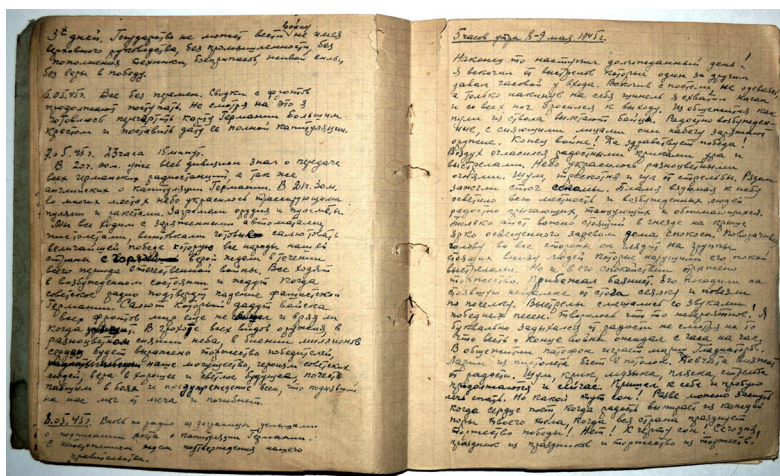 3х дней. Государство не может вести войну не имея
верховного руководства, без промышленности, без
пополнения техники, боеприпасов, живой силы,
без веры в победу.
6.05.45г. Все без перемен. Сводки с фронтов
продолжают поступать. Не смотря на это я
готовлюсь перечертить карту Германии большим
крестом и поставить дату ее полной капитуляции.
7.05.45г. 23 часа 15 минут.
В 20ч. уже весь дивизион знал о передаче
всех германских радиостанций, а так же
английских о капитуляции Германии. В 21ч. 30м.
во многих местах небо украсилось трассирующими
пулями и ракетами. Загремели орудия и пулеметы.
Мы все ходим с заряженными автоматами,
пистолетами, винтовками готовые салютовать
величайшей победе которую все народы нашей
страны с верой ждали в течении
всего периода отечественной войны. Все ходят
в возбужденном состоянии и ждут когда
советское радио подтвердит падение фашистской
Германии. Салют который дадут войска
всех фронтов мир еще не и врядли
когда В грохоте всех видов оружия, в
разноцветном сиянии неба, в биении миллионов
сердец будет выражено торжество победителей,
наше могущество, героизм советских
людей, вера в хорошее и светлое будущее, почесть
павшим в боях и предупреждение всем, что поднявший
на нас меч от меча и погибнет.
8.05.45г. Вновь по радио из заграницы
о подписании акта о капитуляции Германии.
С нетерпением ждем подтверждения нашего
правительства.
5 часов утра 8-9 мая 1945г.
Наконец то наступил долгожданный день!
Я вскочил от выстрелов которые один за другим
давал часовой у входа. Вскочив с постели, не одеваясь
а только накинув на себя шинель я схватил наган
и со всех ног бросился к выходу. Из общежития как
пули из ствола вылетают бойцы. Радостно возбужден-
ные, с сияющими лицами они на бегу заряжают
оружие. Конец войне! Да здравствует победа!
Воздух огласился радостными криками ура и
выстрелами. Небо украсилось разноцветными
огнями. Шум, трескотня и гул от стрельбы. Рядом
зажгли стог соломы. Пламя вздымая к небу
осветило всю местность и возбужденных людей
радостно прыгающих танцующих и обнимающихся.
Только аист важно стоящий в гнезде на крыше
ярко освещенного рядом дома спокоен. Поворачивая
голову во все стороны он глядит на группы
стоящих внизу людей которые нарушили его покой
выстрелами. Но и в его спокойствии отражено
торжество. Прибежал баянист. Его посадили на
стоявшую неподалеку от стога сеялку и повезли
по поселку. Выстрелы смешались со звуками
победных песен. Творилось что то невероятное. Я
буквально задыхался от радости не смотря на то
что весть о конце войны ожидал с часа на час.
В общежитии патефон играет марш Гладиаторов.
Заряжаю из пистолета бьет в потолок.
от радости. Шум, крик, музыка, пляска, стрельба
продолжаются и сейчас. Пришел к себе и пробую
лечь спать. Но какой тут сон! Разве можно заснуть
когда сердце поет когда радость выпирает из каждой
поры твоего тела, когда вся страна празднует
торжество победы! Нет! К черту сон! Сегодня
праздник из праздников и торжество из торжеств.